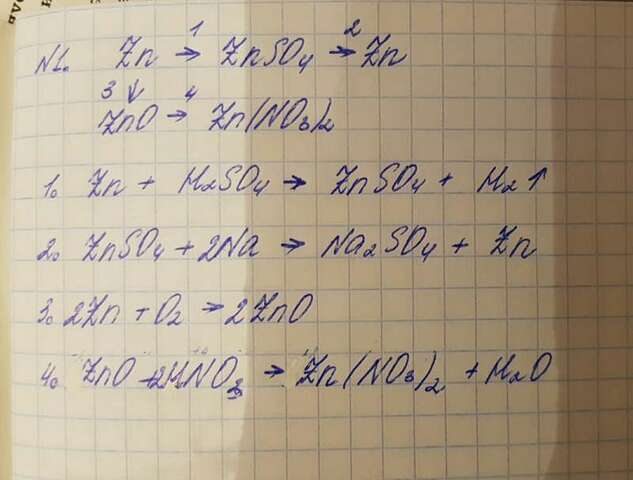 N1. Zn 1→ ZnSO4 2→ Zn
3↓ 4
ZnO → Zn(NO3)2
1. Zn + H2SO4 → ZnSO4 + H2↑
2. ZnSO4 + 2Na → Na2SO4 + Zn
3. 2Zn + O2 → 2ZnO
4. ZnO + 2HNO3 → Zn(NO3)2 + H2O